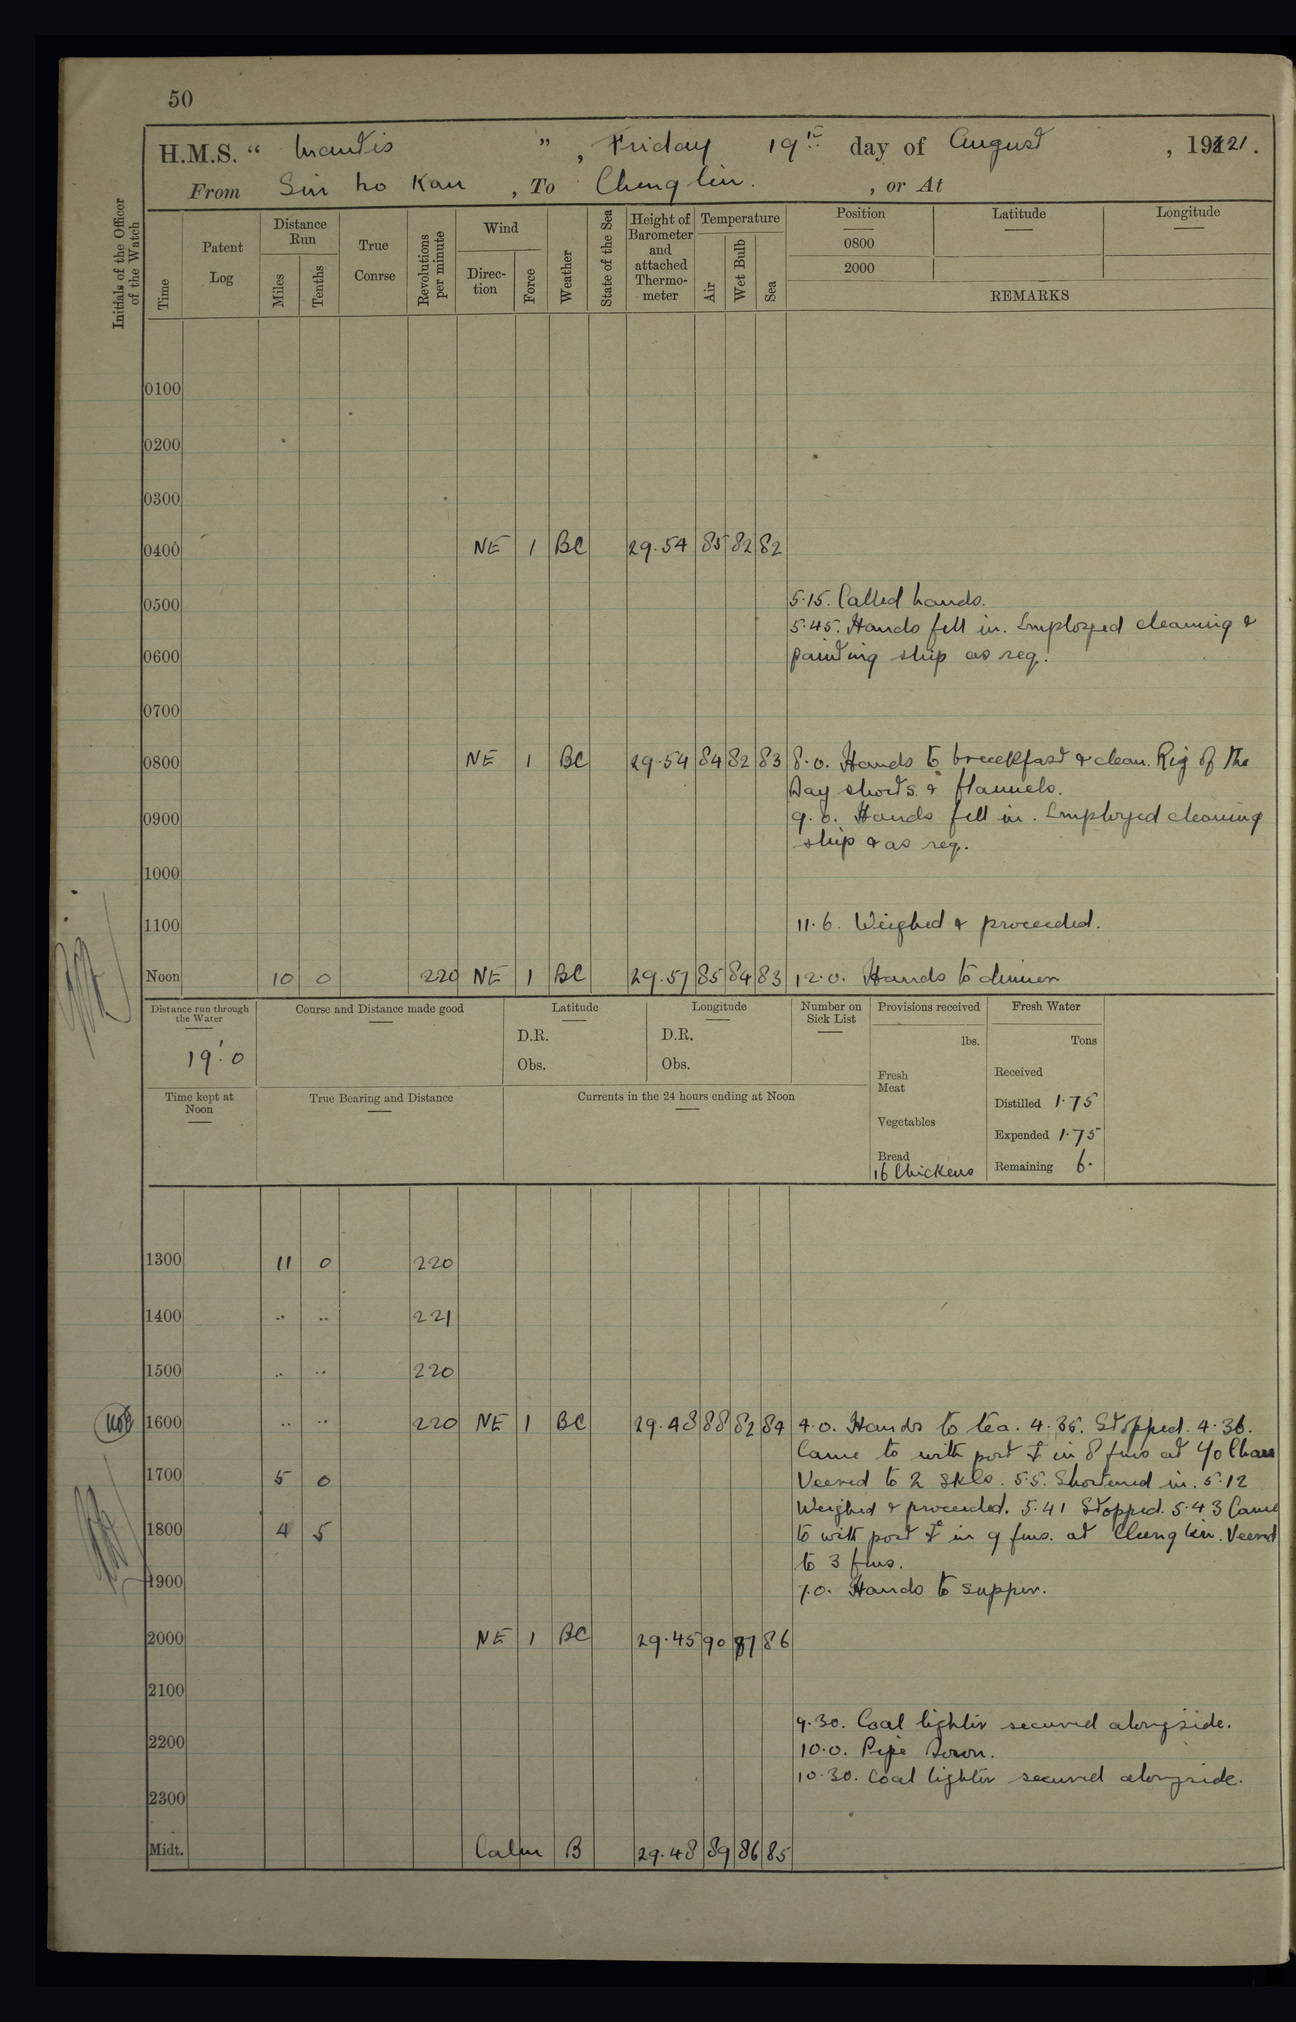 50
H.M.S. " Mantis ", Friday 19th day of August, 1921.
From Sin ho Kau, To Chenglin. , or At
Initials of the Officer of the Watch
Time
Patent Log
Distance Run
Miles
Tenths
True Conrse
Revolutions per minute
Wind
Direc-tion
Force
Weather
State of the Sea
Height of Barometer and attached Thermo-meter
Temperature
Air
Wet Bulb
Sea
Position
Latitude
Longitude
0800
2000
REMARKS
0100
0200
0300
0400 NE 1 BC 29.54 85 82 82
5.15. Called hands.
0500
5.45. Hands fell in. Employed cleaning &
0600 painting ship as req.
0700
0800 NE 1 BC 29.54 84 82 83 8.0. Hands to breakfast & clean. Rig of the
Day shorts & flannels.
0900 9.0. Hands fell in. Employed cleaning
ship & as req.
1000
1100 11.6. Weighed & proceeded.
Noon 10 0 220 NE 1 BC 29.57 85 84 83 12.0. Hands to dinner
Distance run through the Water
19'.0
Course and Distance made good
Latitude
D.R.
Obs.
Longitude
D.R.
Obs.
Number on Sick List
Provisions received
lbs.
Fresh Meat
Vegetables
Bread
16 Chickens
Fresh Water
Tons
Received
Distilled 1.75
Expended 1.75
Remaining 6.
Time kept at Noon
True Bearing and Distance
Currents in the 24 hours ending at Noon
1300 11 0 220
1400 .. .. 221
1500 .. .. 220
1600 .. .. 220 NE 1 BC 29.48 88 82 84 4.0. Hands to tea. 4.35. Stopped. 4.36.
Came to with port ⚓ in 8 fms at Yo Chau
1700 5 0 Veered to 2 skls. 5.5. Shortened in. 5.12
Weighed & proceeded. 5.41 Stopped. 5.43 Came
1800 4 5 to with port ⚓ in 9 fms. at Chenglin. Veered
to 3 fms.
1900 7.0. Hands to supper.
2000 NE 1 BC 29.45 90 87 86
2100
9.30. Coal lighter secured alongside.
2200 10.0. Pipe Down.
10.30. Coal lighter secured alongside.
2300
Midt. Calm B 29.48 89 86 85